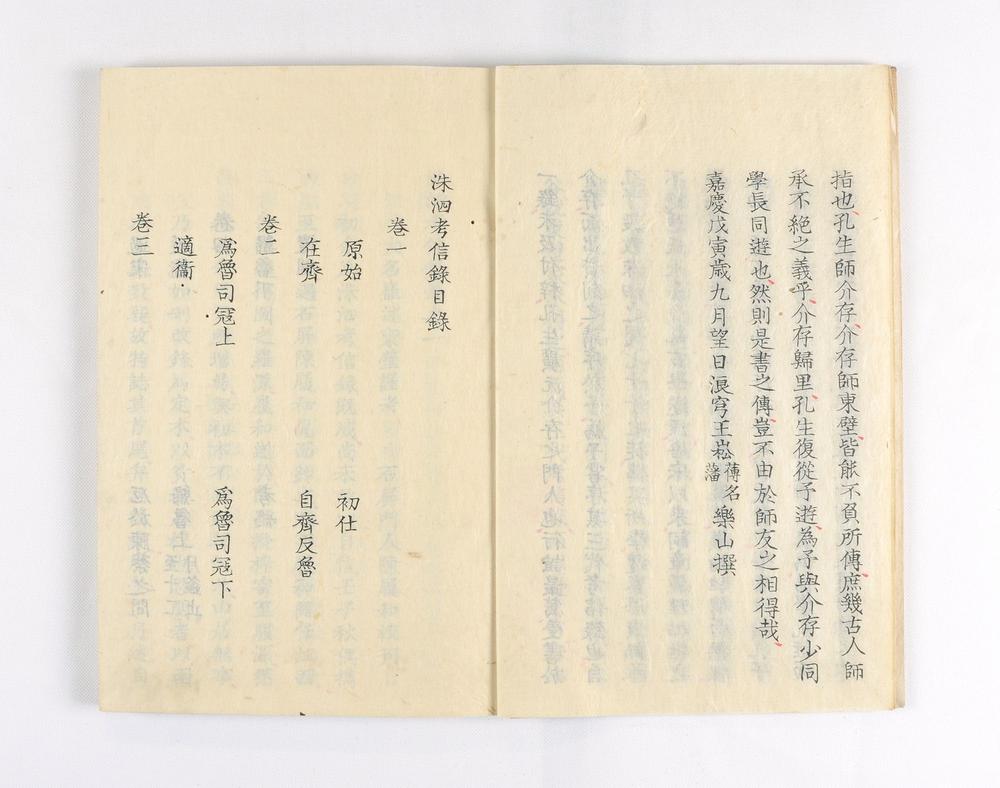 指也孔生師介存介存師東壁皆能不負所傳庶幾古人師
承不絕之義乎介存歸里孔生復從予遊為予與介存少同
學長同遊也然則是書之傳豈不由於師友之相得哉
嘉慶戊寅歲九月望日浪穹王崧藩傳名樂山撰
洙泗考信錄目錄
卷一
原始 初仕
在齊 自齊反魯
卷二
為魯司寇上 為魯司寇下
適衞
卷三